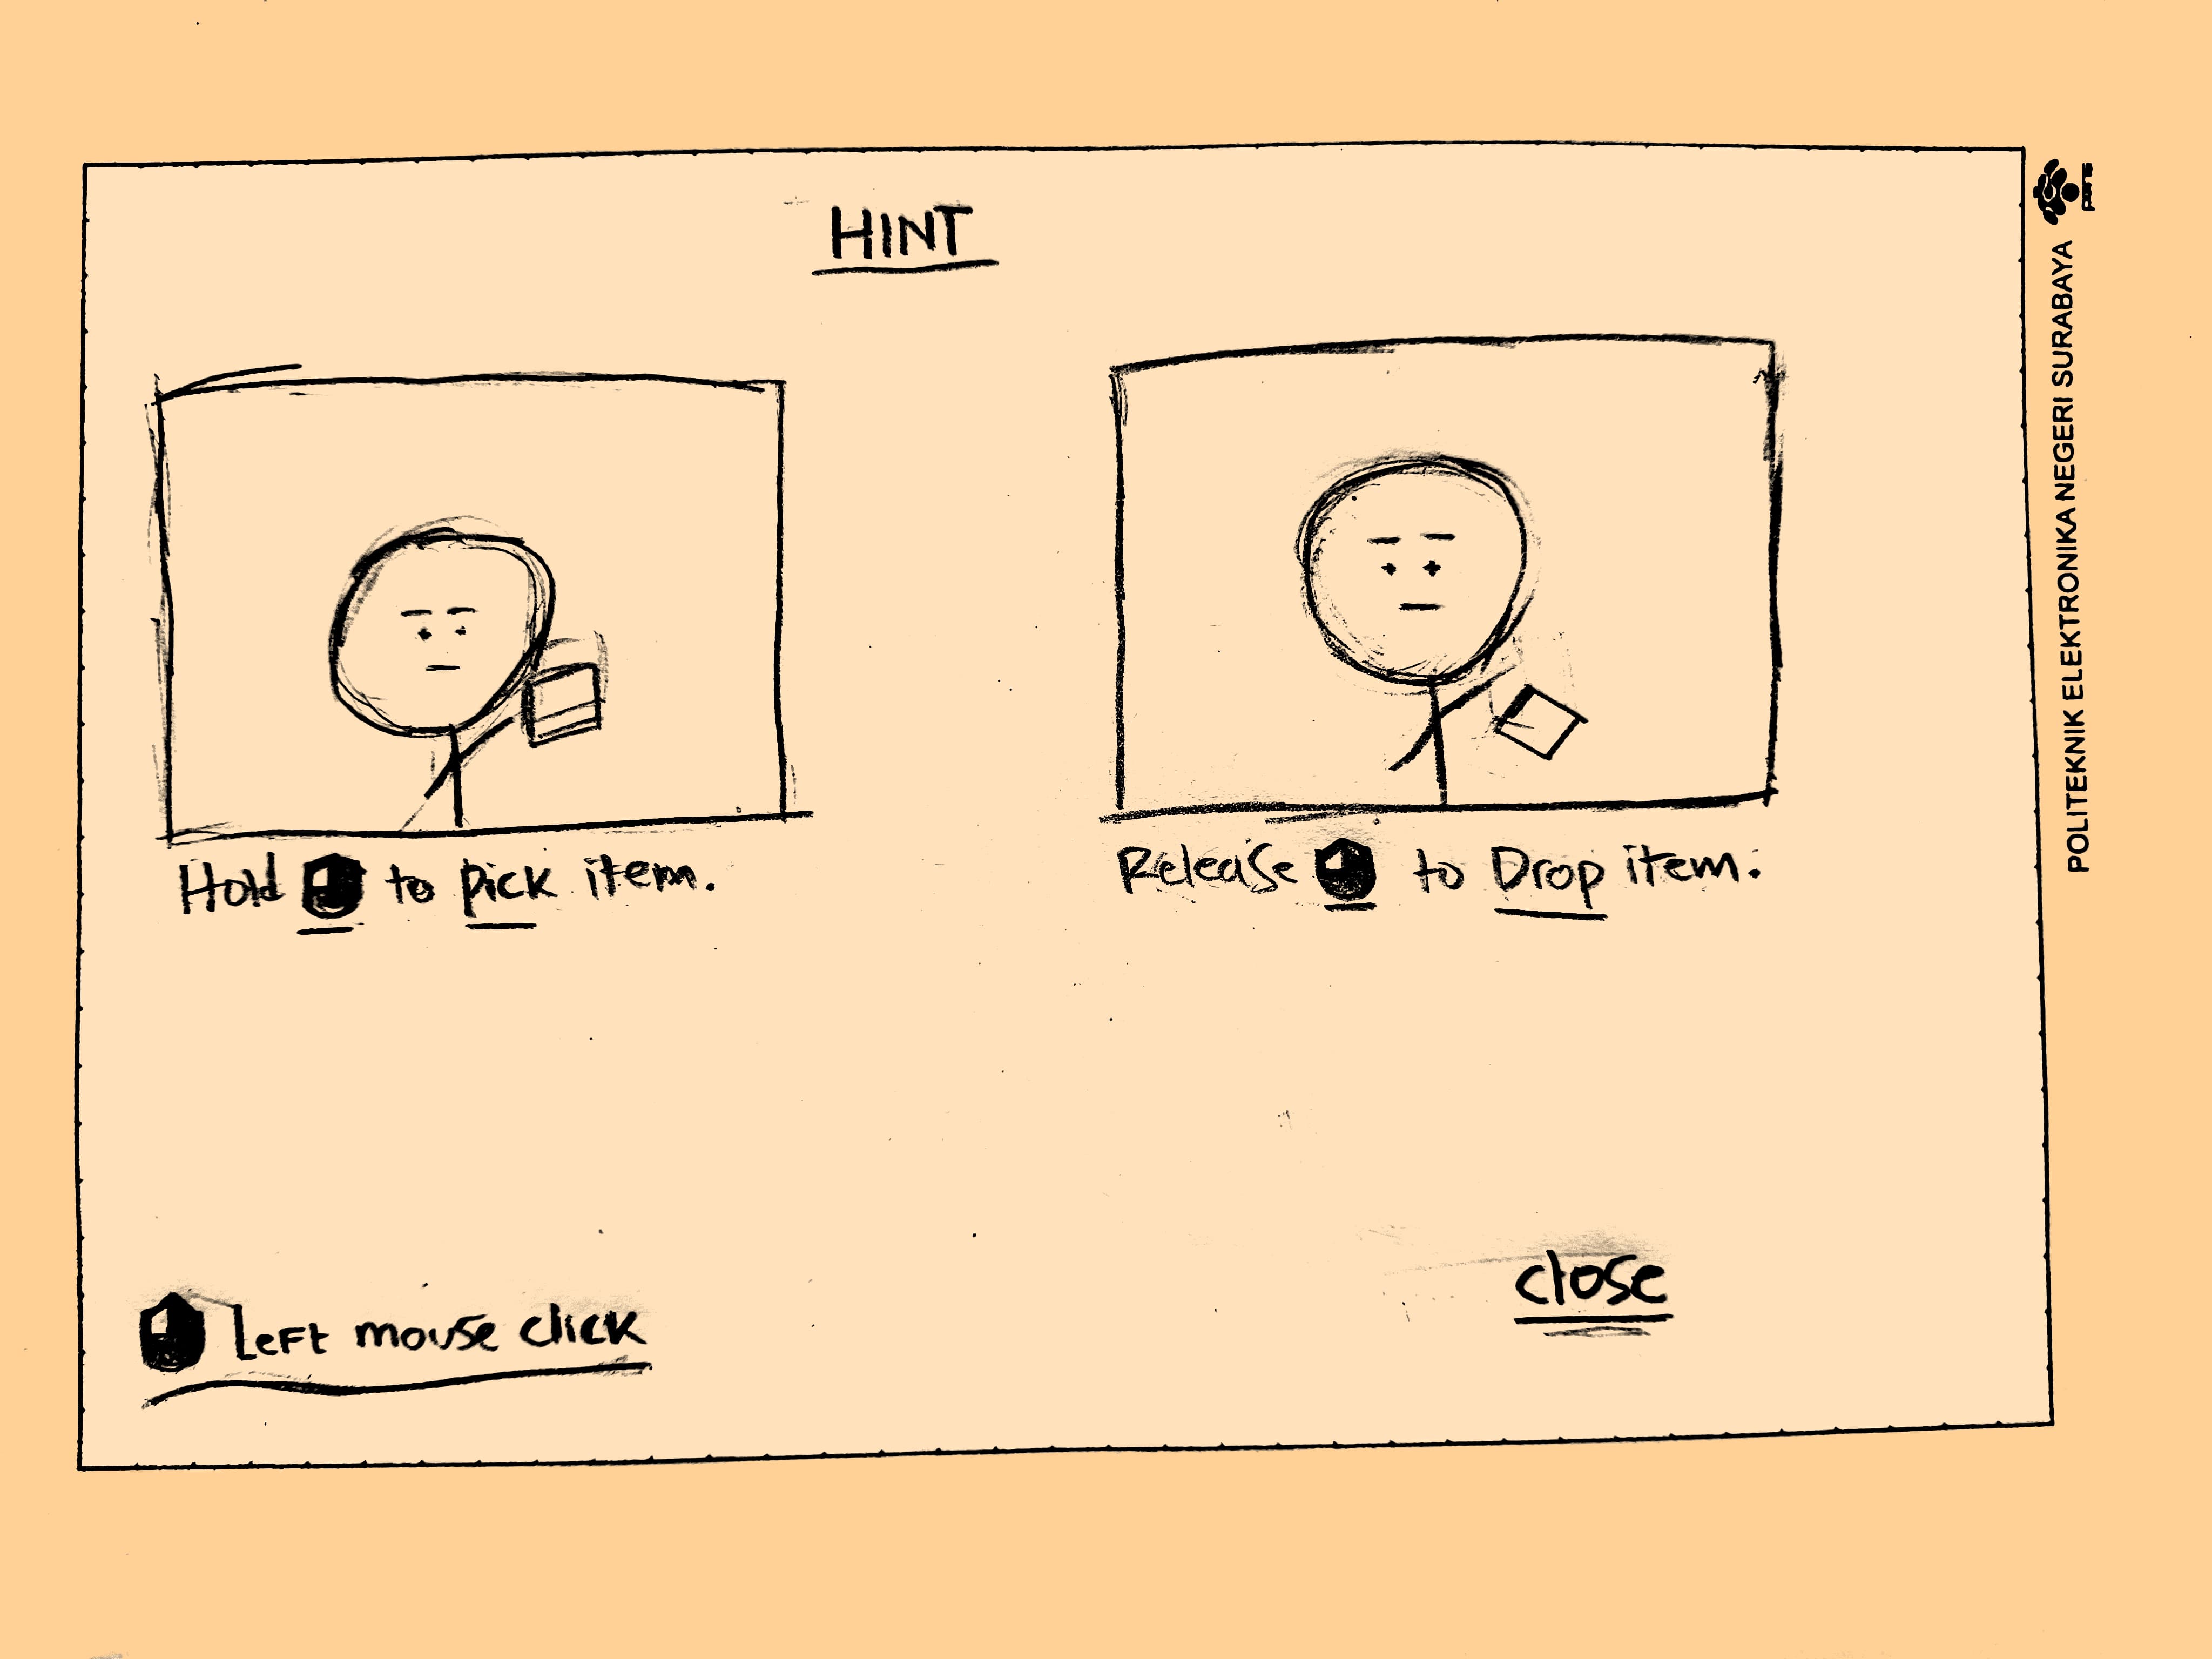 HINT
Hold to pick item.
Release to Drop item.
Left mouse click
close
POLITEKNIK ELEKTRONIKA NEGERI SURABAYA
pens